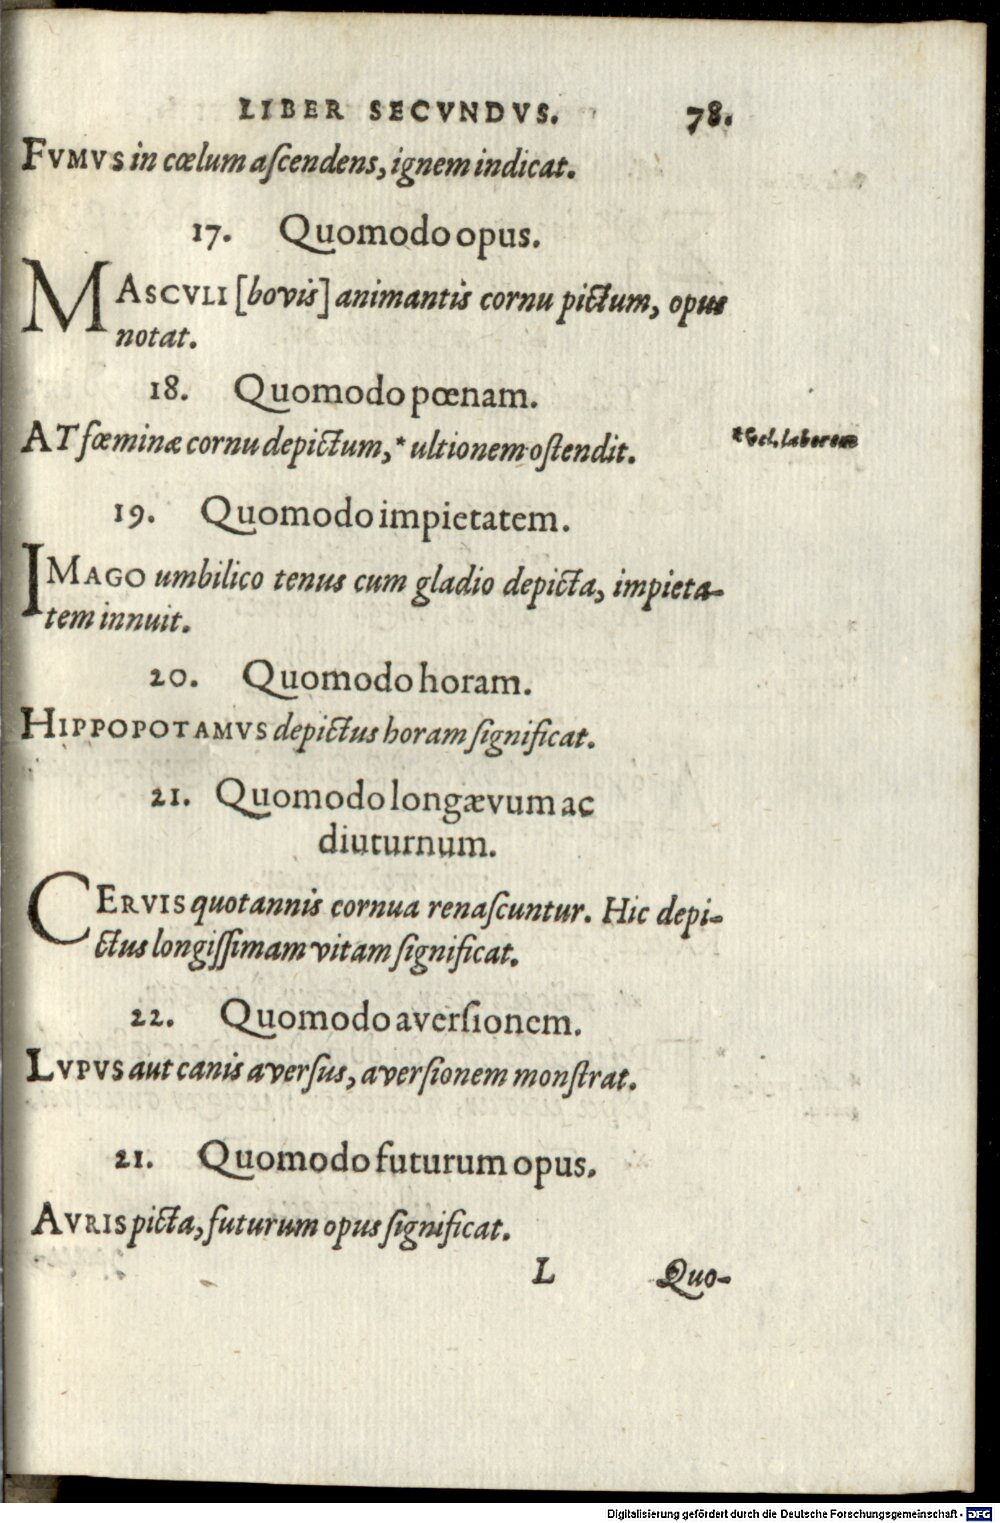 LIBER SECVNDVS. 78.
FVMVS in cœlum aſcendens, ignem indicat.
17. Quomodo opus.
MASCVLI [bovis] animantis cornu pictum, opus
notat.
18. Quomodo pœnam.
AT fœminæ cornu depictum, * ultionem oſtendit.
* Vel, laborem
19. Quomodo impietatem.
IMAGO umbilico tenus cum gladio depicta, impieta-
tem innuit.
20. Quomodo horam.
HIPPOPOTAMVS depictus horam ſignificat.
21. Quomodo longævum ac
diuturnum.
CERVIS quotannis cornua renaſcuntur. Hic depi-
ctus longiſſimam vitam ſignificat.
22. Quomodo averſionem.
LVPVS aut canis averſus, averſionem monſtrat.
21. Quomodo futurum opus.
AVRIS picta, futurum opus ſignificat.
L Quo-
Digitalisierung gefördert durch die Deutsche Forschungsgemeinschaft - DFG